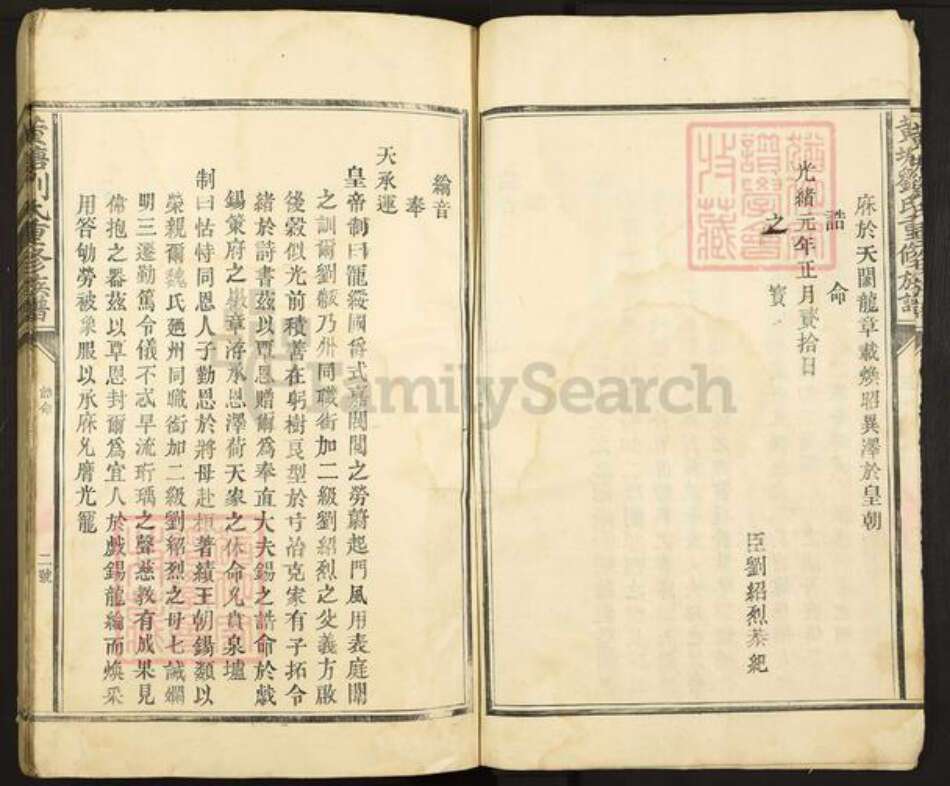 黃塘劉氏重修族譜
庥於天閶龍章載煥昭異澤於皇朝
誥命
光緒元年正月貳拾日
之寶
臣劉紹烈恭紀
綸音
奉
天承運
皇帝制曰寵綏國爵式嘉閥閱之勞蔚起門風用表庭闈
之訓爾劉 乃 同職銜加二級劉紹烈之父義方啟
後穀似光前積善在躬樹良型於弓冶克家有子拓令
緒於詩書茲以覃恩贈爾為奉直大夫錫之誥命於戲
錫策府之徽章洊承恩澤荷天家之休命允賁泉壚
制曰怙恃同恩人子勤思於將母赳桓著績王朝錫類以
榮親爾魏氏廼州同職銜加二級劉紹烈之母七誡嫻
明三遷勤篤令儀不忒早流珩瑀之聲慈教有成果見
佈抱之器茲以覃恩封爾為宜人於戲錫龍綸而煥采
用答劬勞被象服以承庥允膺光寵
黃塘劉氏重修族譜
誥命
二號
FamilySearch